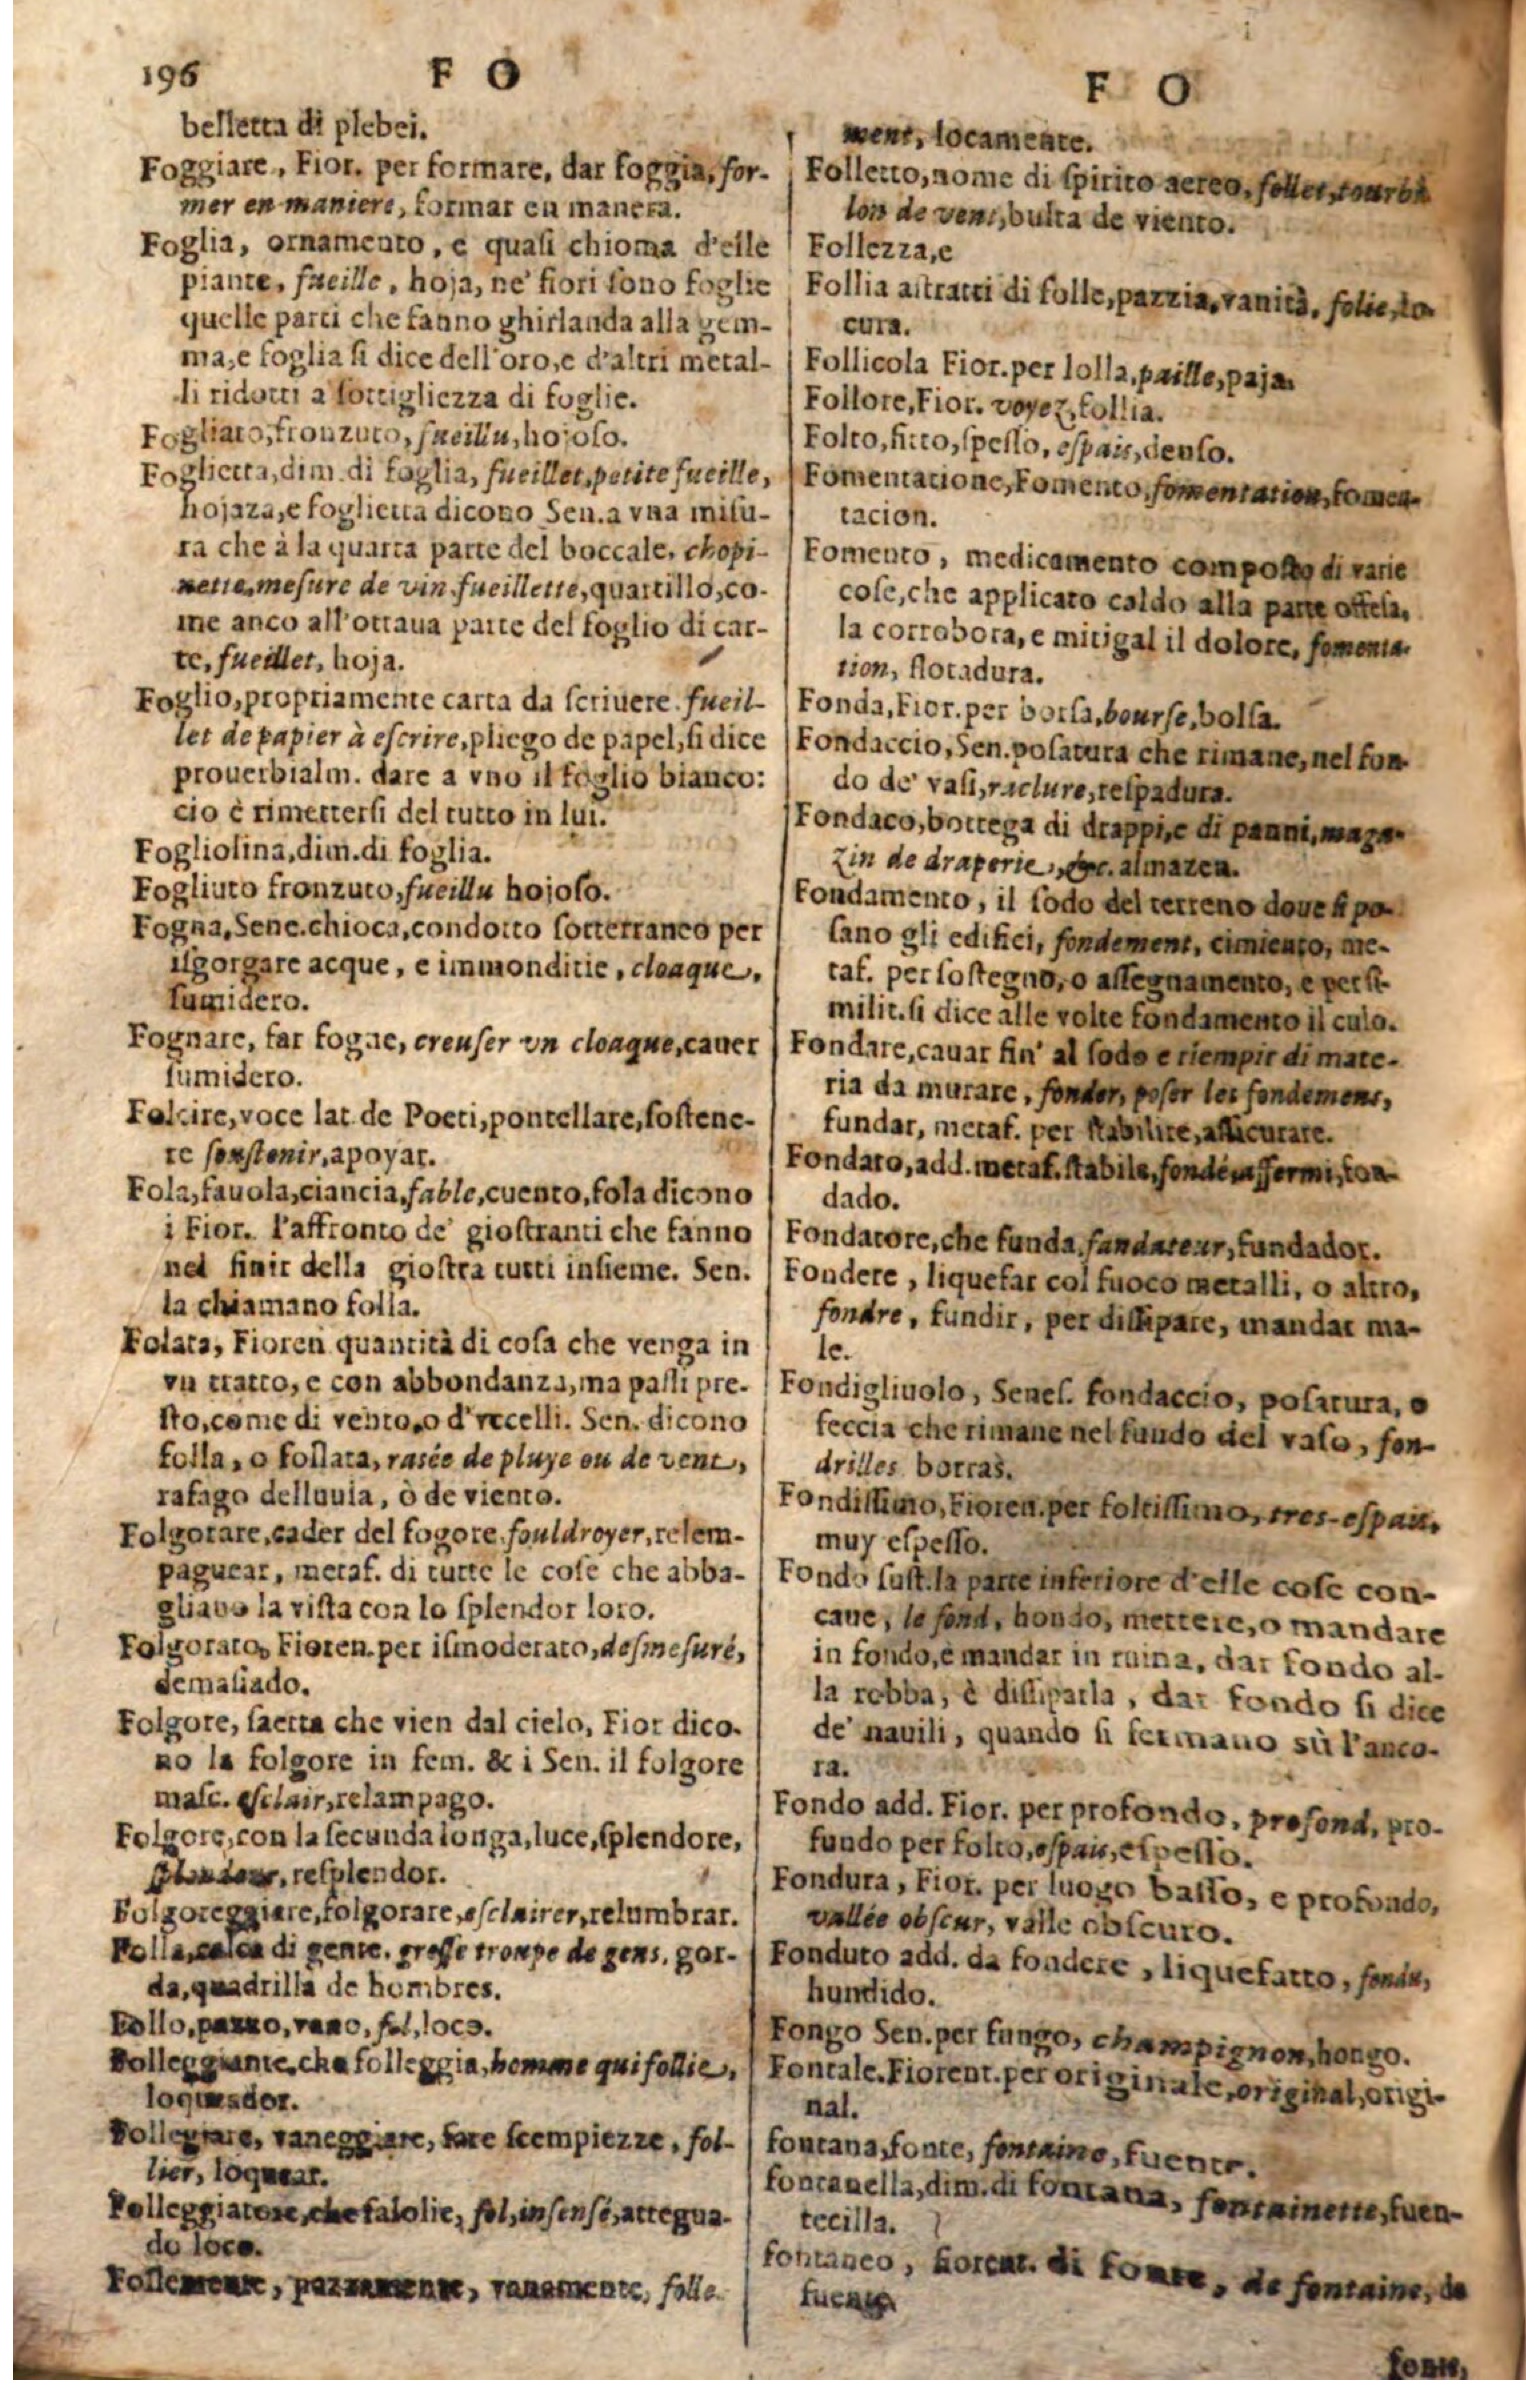 196 F O
belletta di plebei.
Foggiare, Fior. per formare, dar foggia, for-
mer en maniere, formar en manera.
Foglia, ornamento, e quasi chioma d'elle
piante, fueille, hoja, ne' fiori sono foglie
quelle parti che fanno ghirlanda alla gem-
ma,e foglia si dice dell'oro,e d'altri metal-
li ridotti a sottigliezza di foglie.
Fogliato,fronzuto, fueillu,hojoso.
Foglietta,dim.di foglia, fueillet,petite fueille,
hojaza,e foglietta dicono Sen.a vna misu-
ra che à la quarta parte del boccale, chopi-
nette,mesure de vin.fueillette,quartillo,co-
me anco all'ottaua parte del foglio di car-
te, fueillet, hoja.
Foglio,propriamente carta da scriuere.fueil-
let de papier à escrire,pliego de papel,si dice
prouerbialm. dare a vno il foglio bianco:
cio è rimettersi del tutto in lui.
Fogliolina,dim.di foglia.
Fogliuto fronzuto,fueillu hojoso.
Fogna,Sene.chioca,condotto sotterraneo per
isgorgare acque, e immonditie, cloaque,
sumidero.
Fognare, far fogne, creuser vn cloaque,cauer
sumidero.
Folcire,voce lat.de Poeti,pontellare,sostene-
re soustenir,apoyar.
Fola,fauola,ciancia,fable,cuento,fola dicono
i Fior. l'affronto de' giostranti che fanno
nel finir della giostra tutti insieme. Sen.
la chiamano folla.
Folata, Fioren quantità di cosa che venga in
vn tratto, e con abbondanza,ma passi pre-
sto,come di vento,o d'vccelli. Sen. dicono
folla, o follata, rasée de pluye ou de vent,
rafago delluuia, ò de viento.
Folgorare,cader del fogore.fouldroyer,relem-
paguear, metaf. di tutte le cose che abba-
gliano la vista con lo splendor loro.
Folgorato, Fioren.per ismoderato,desmesuré,
demasiado.
Folgore, saetta che vien dal cielo, Fior dico-
no la folgore in fem. & i Sen. il folgore
masc. esclair,relampago.
Folgore,con la secunda longa,luce,splendore,
resplendor.
Folgoreggiare,folgorare,esclairer,relumbrar.
Folla,calca di gente. grosse troupe de gens, gor-
da,quadrilla de hombres.
Follo,pazzo,vano, fol,loco.
Folleggiante,che folleggia,homme qui follie,
loqueador.
Follegiare, vaneggiare, fare scempiezze, fol-
lier, loquear.
Folleggiatore,che fa folie, fol,insensé,attegua-
do loco.
Follemente, pazzamente, vanamente, folle-
F O
ment, locamente.
Folletto,nome di spirito aereo, follet,tourbil
lon de vent,bulta de viento.
Follezza,e
Follia astratti di folle,pazzia,vanità, folie,lo-
cura.
Follicola Fior.per lolla,paille,paja.
Follore,Fior. voyez,follia.
Folto,fitto,spesso, espais,denso.
Fomentatione,Fomento,fomentation,fomen-
tacion.
Fomento, medicamento composto di varie
cose,che applicato caldo alla parte offesa,
la corrobora,e mitigal il dolore, fomenta-
tion, flotadura.
Fonda,Fior.per borsa,bourse,bolsa.
Fondaccio,Sen.posatura che rimane,nel fon-
do de' vasi,raclure,respadura.
Fondaco,bottega di drappi,e di panni,maga-
zin de draperie, &c. almazen.
Fondamento, il sodo del terreno doue si po-
sano gli edifici, fondement, cimiento, me-
taf. per sostegno, o assegnamento, e per si-
milit.si dice alle volte fondamento il culo.
Fondare,cauar fin' al sodo e riempir di mate-
ria da murare, fonder, poser les fondemens,
fundar, metaf. per stabilire,assicurare.
Fondato,add.metaf.stabile,fondé,affermi,fon-
dado.
Fondatore,che funda,fandateur,fundador.
Fondere, liquefar col fuoco metalli, o altro,
fondre, fundir, per dissipare, mandar ma-
le.
Fondigliuolo, Senes. fondaccio, posatura, o
feccia che rimane nel fundo del vaso, fon-
drilles borras.
Fondissimo,Fioren.per foltissimo, tres-espais,
muy espesso.
Fondo sust.la parte inferiore d'elle cose con-
caue, le fond, hondo, mettere,o mandare
in fondo,è mandar in ruina, dar fondo al-
la robba, è dissiparla, dar fondo si dice
de' nauili, quando si fermano sù l'anco-
ra.
Fondo add. Fior. per profondo, profond, pro-
fundo per folto,espais,espesso.
Fondura, Fior. per luogo basso, e profondo,
vallée obscur, valle obscuro.
Fonduto add. da fondere, liquefatto, fondu,
hundido.
Fongo Sen.per fungo, champignon,hongo.
Fontale.Fiorent.per originale,original,origi-
nal.
fontana,fonte, fontaine,fuente.
fontanella,dim.di fontana, fontainette,fuen-
tecilla.
fontaneo, fiorent. di fonte, de fontaine, de
fuente
fonte,